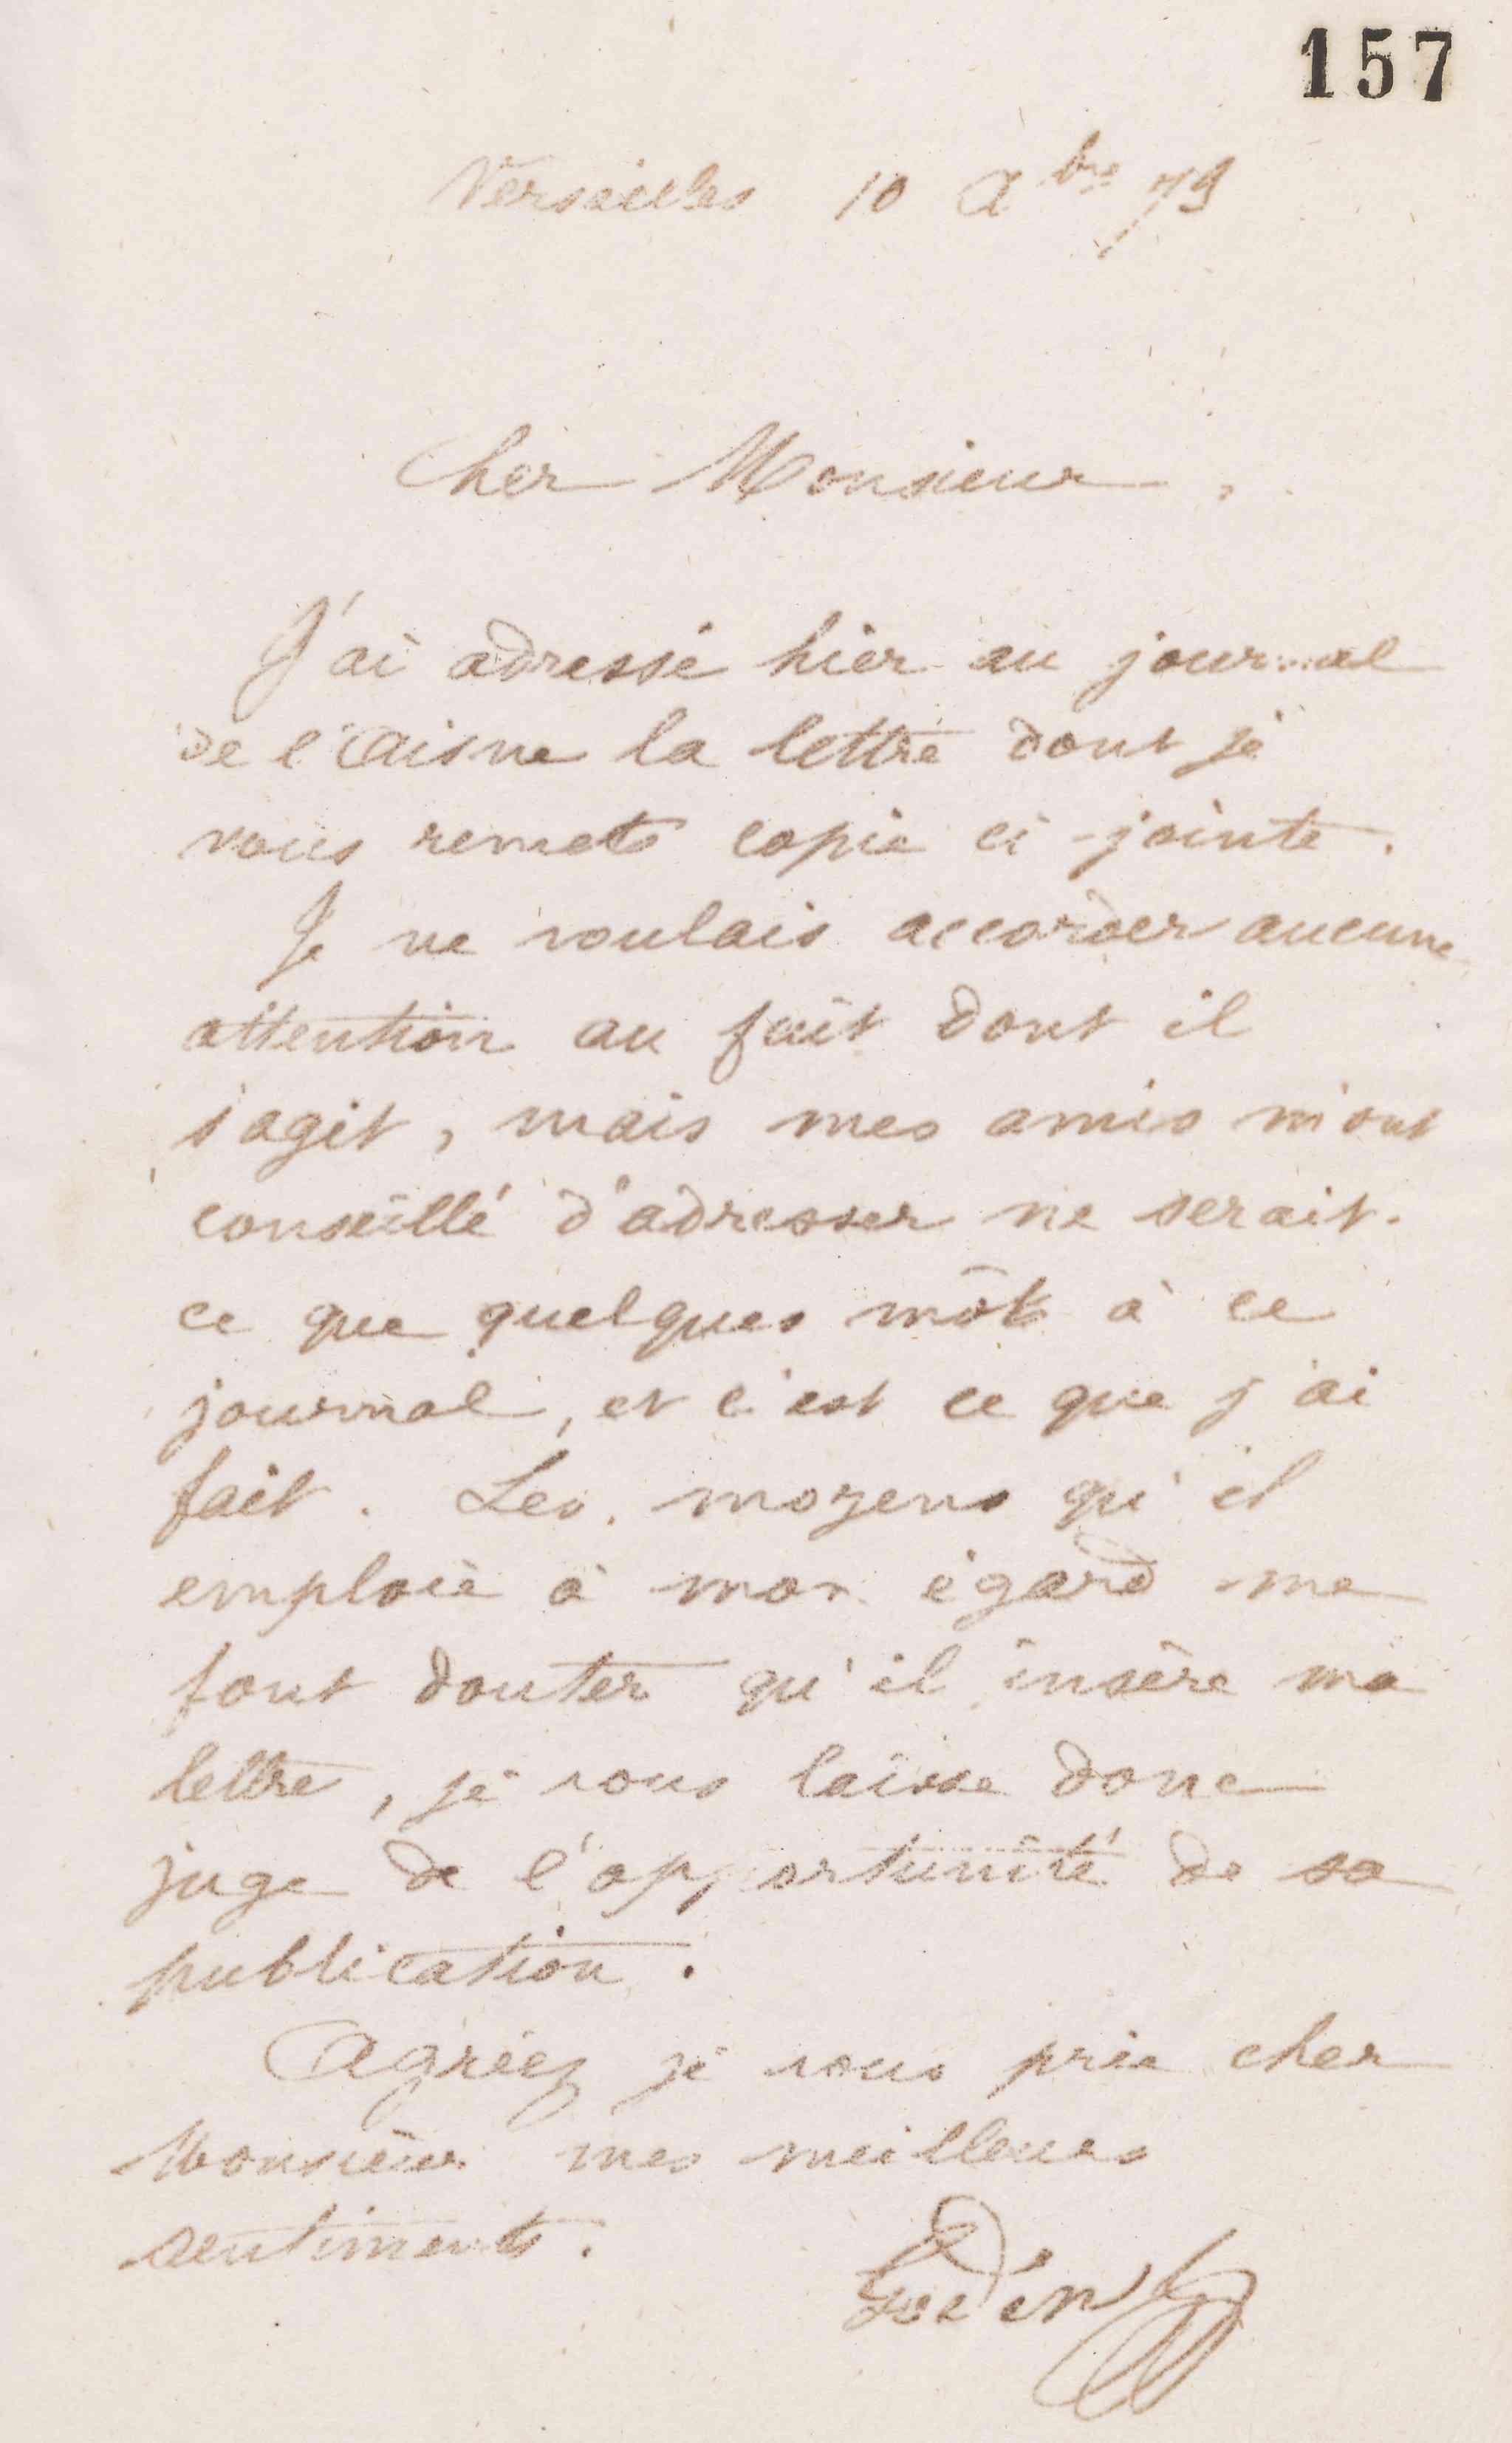 157
Versailles 10 Xbre 79
Cher Monsieur,
J'ai adressé hier au journal
de l'Aisne la lettre dont je
vous remets copie ci-jointe.
Je ne voulais accorder aucune
attention au fait dont il
s'agit, mais mes amis m'ont
conseillé d'adresser ne serait-
ce que quelques mots à ce
journal, et c'est ce que j'ai
fait. Les moyens qu'il
emploie à mon égard me
font douter qu'il insère ma
lettre, je vous laisse donc
juge de l'opportunité de sa
publication.
Agréez je vous prie cher
Monsieur mes meilleurs
sentiments.
Godin